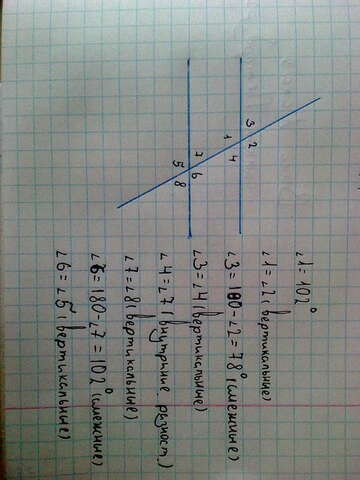 3
1
2
4
7
5
6
8
∠1 = 102°
∠1 = ∠2 (вертикальные)
∠3 = 180 - ∠2 = 78° (смежные)
∠3 = ∠4 (вертикальные)
∠4 = ∠7 (внутрине. разност.)
∠7 = ∠8 (вертикальные)
∠6 = 180 - ∠7 = 102° (смежные)
∠6 = ∠5 (вертикальные)